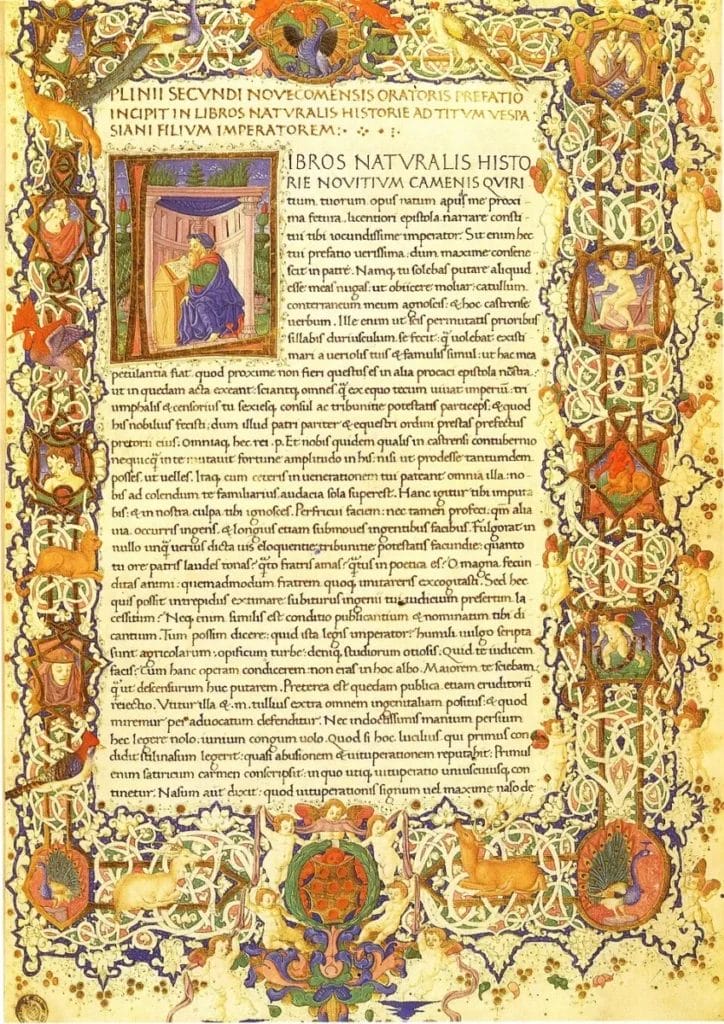 PLINII SECVNDI NOVECOMENSIS ORATORIS PREFATIO
INCIPIT IN LIBROS NATVRALIS HISTORIE AD TITVM VESPA
SIANI FILIVM IMPERATOREM:
LIBROS NATVRALIS HISTO
RIE NOVITIVM CAMENIS QVIRI
tium tuorum opus natum apud me proxi
ma fetura. licentiori epistola narrare consti
tui tibi iocundissime imperator. Sit enim hec
tui prefatio uerissima. dum maximo consene
scit in patre. Namq; tu solebas putare aliquid
esse meas nugas. ut obiicere moliar catullum.
conterraneum meum agnoscis: & hoc castrense
uerbum. Ille enim ut scis permutatis prioribus
sillabis duriusculum se fecit: q̃ uolebat existi
mari a ueriolis tuis & famulis simul: ut hac mea
petulantia fiat. quod proxime non fieri questus es in alia procaci epistola nostra.
ut in quedam acta exeant: sciantq; omnes q̃ ex equo tecum uiuat imperiũ: tri
umphalis & censorius tu sexiesq; consul ac tribunitie potestatis particeps. & quod
his nobilius fecisti: dum illud patri pariter & equestri ordini prestas prefectus
pretorii eius. Omniaq; hec rei .p. Et nobis quidem qualis in castrensi contubernio
nequicq̃ in te mutauit fortune amplitudo in his. nisi ut prodesse tantumdem
posses. ut uelles. Itaq; cum ceteris in uenerationem tui pateant omnia illa: no
bis ad colendum te familiarius audacia sola superest. Hanc igitur tibi imputa
bis: & in nostra culpa tibi ignosces. Perfricui faciem: nec tamen profeci: qm̃ alia
uia. occurris ingens. & longius etiam submoues ingentibus facibus. Fulgorat in
nullo unq̃ uerius dicta uis eloquentie. tribunitie potestatis facundie: quanto
tu ore patris laudes tonas: q̃to fratris amas: q̃tus in poetica es: O magna fecun
ditas animi: quemadmodum fratrem quoq; imitareris excogitasti. Sed hec
quis possit intrepidus extimare subiturus ingenii tui iudicium presertim la
cessitum: Neq; enim similis est conditio publicantium & nominatim tibi di
cantium. Tum possim dicere: quid ista legis imperator: humili uulgo scripta
sunt agricolarum. opificum turbe: deniq; studiorum otiosis. Quid te iudicem
facis: Cum hanc operam condicerem non eras in hoc albo. Maiorem te sciebam.
q̃ ut descensurum huc putarem. Preterea est quedam publica. etiam eruditorũ
reiectio. Vtitur illa & .m. tullius extra omnem ingenitaliam positus: & quod
miremur per aduocatum defenditur. Nec indoctissimis manium persium
hec legere nolo. iunium congum uolo. Quod si hoc lucilius. qui primus con
didit stili nasum legerit: quasi abusionem & uituperationem reputabit: Primus
enim satiricum carmen conscripsit: in quo utiq; uituperatio uniuscuiusq; con
tinetur. Nasum aut̃ dixit: quod uituperationis signum uel maxime naso de